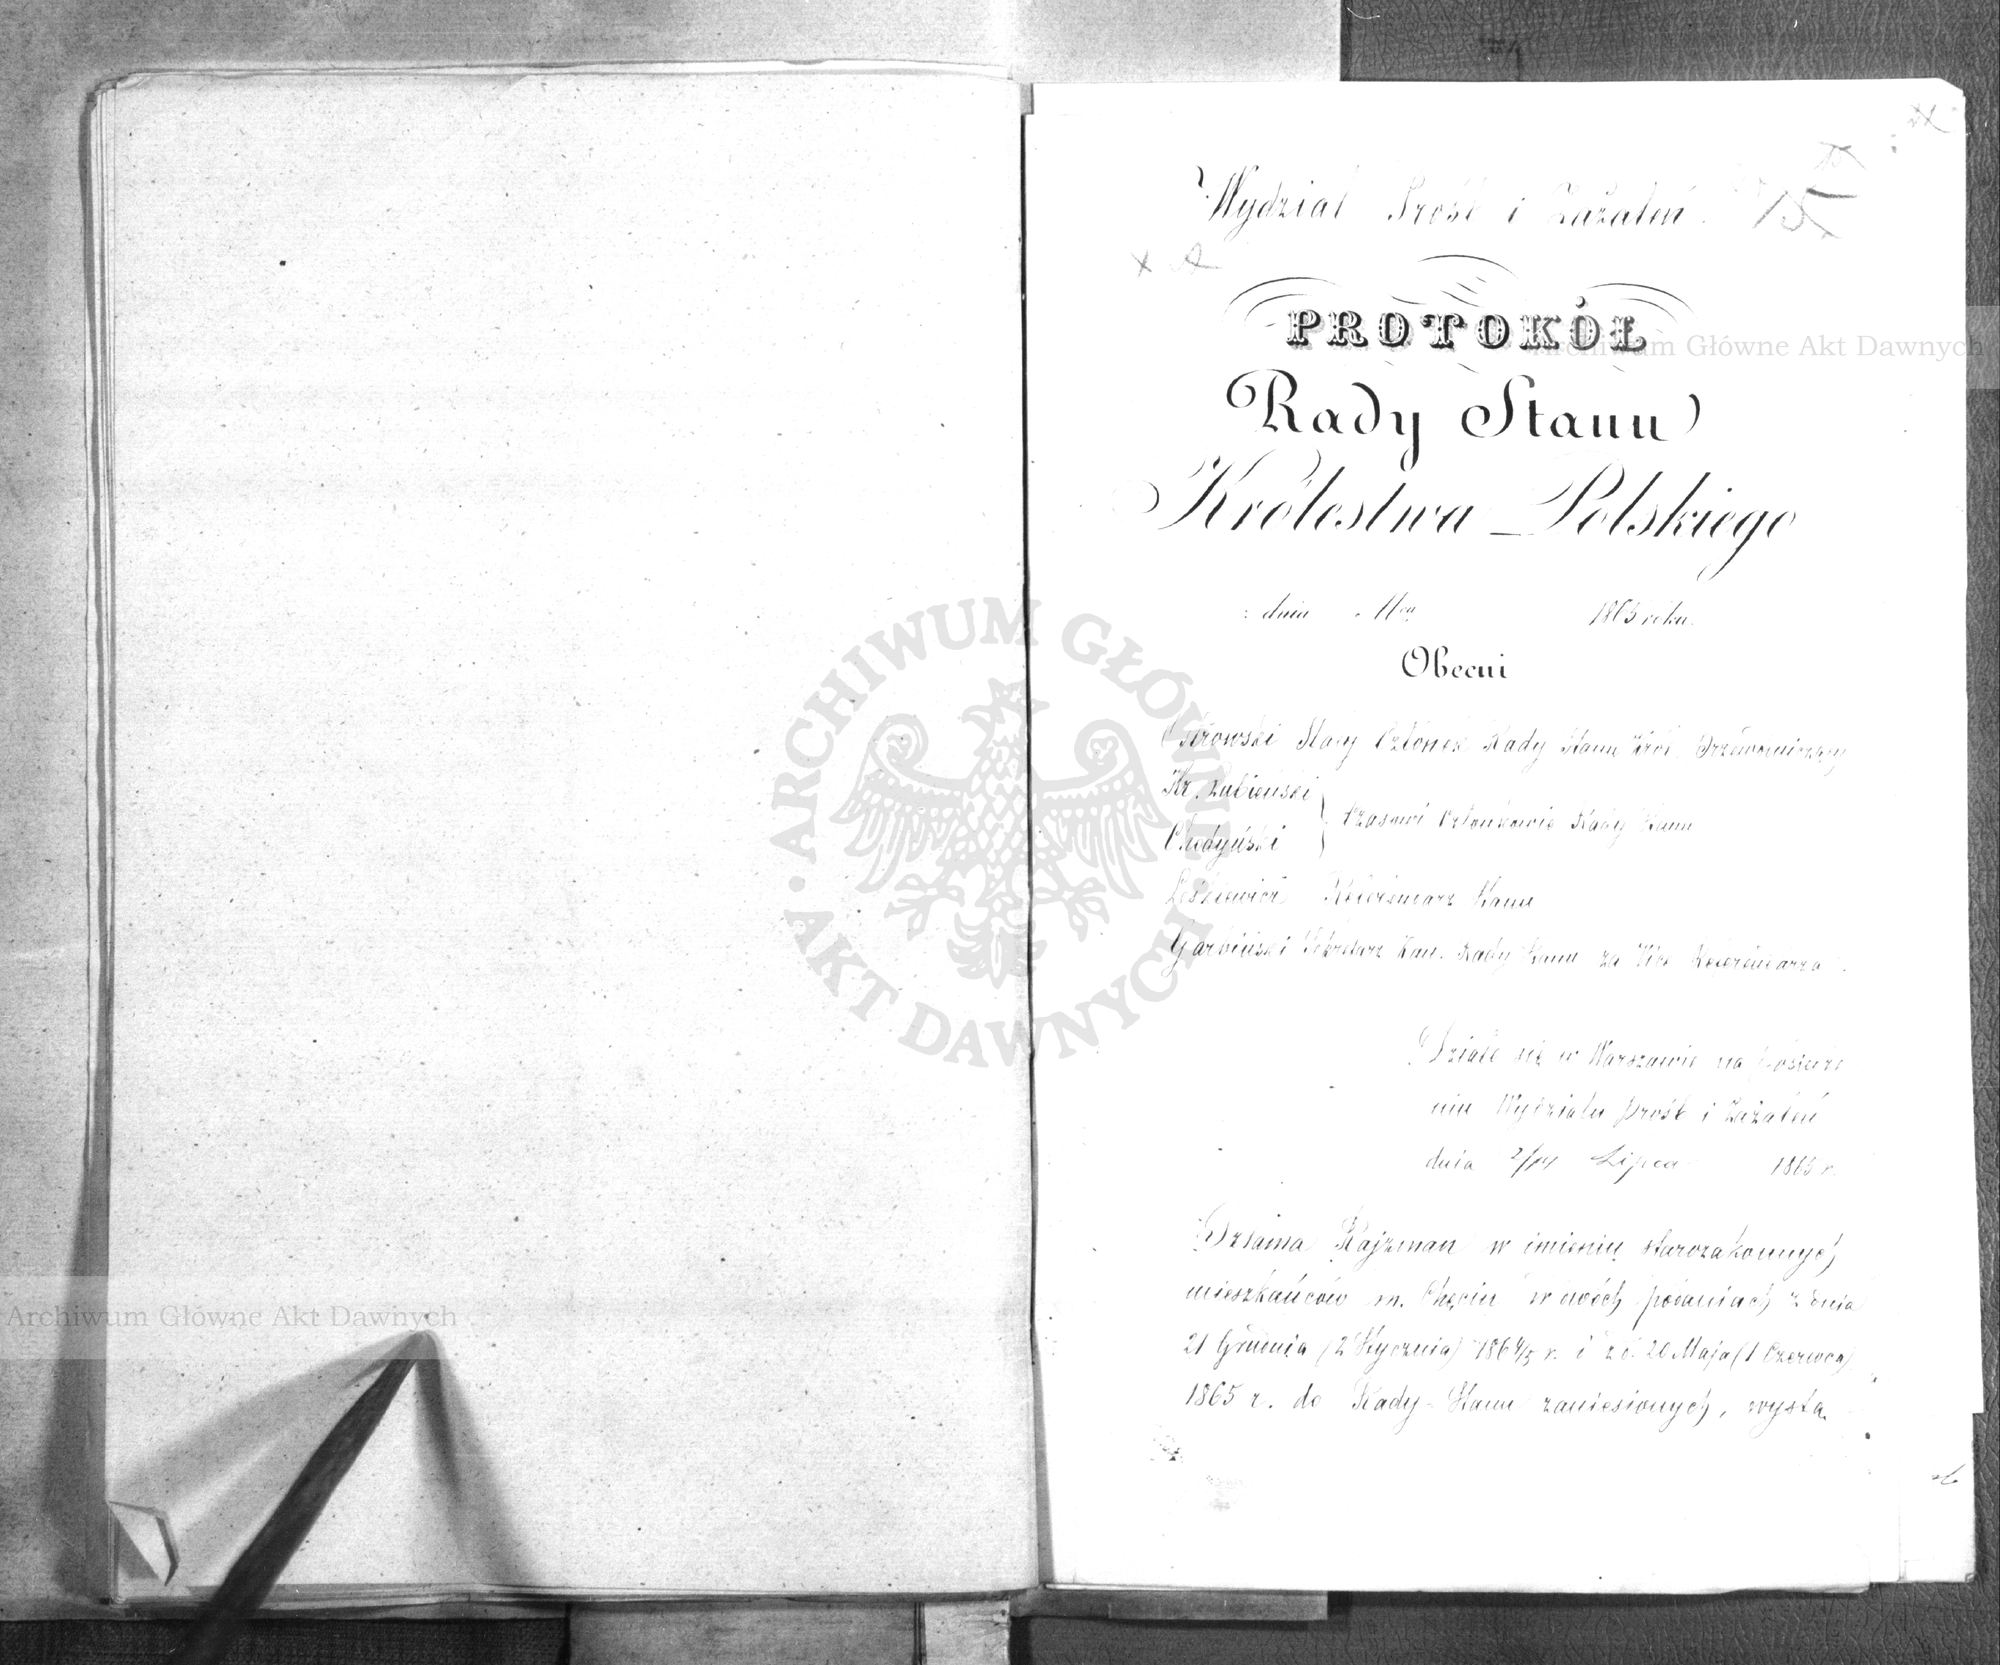 Wydział Próśb i Zażaleń.
15
PROTOKÓŁ
Rady Stanu
Królestwa Polskiego
dnia Mca 1865 roku.
Obecni
Ostrowski Stały Członek Rady Stanu Król. Przewodniczący
Hr. Łubieński
Chodyński
Czasowi Członkowie Rady Stanu
Leśkiewicz Referendarz Stanu
Garbiński Sekretarz Kan. Rady Stanu za Vice Referendarza.
Działo się w Warszawie na posiedze
niu Wydziału Próśb i Zażaleń
dnia 2/14 Lipca 1865 r.
Dziama Kajzman w imieniu starozakonnych
mieszkańców m. Chęcin w dwóch podaniach z dnia
21 Grudnia (2 Stycznia) 1864/5 r. i z d. 20 Maja (1 Czerwca)
1865 r. do Rady Stanu zaniesionych, wysta
ARCHIWUM GŁÓWNE AKT DAWNYCH
Archiwum Główne Akt Dawnych
Archiwum Główne Akt Dawnych